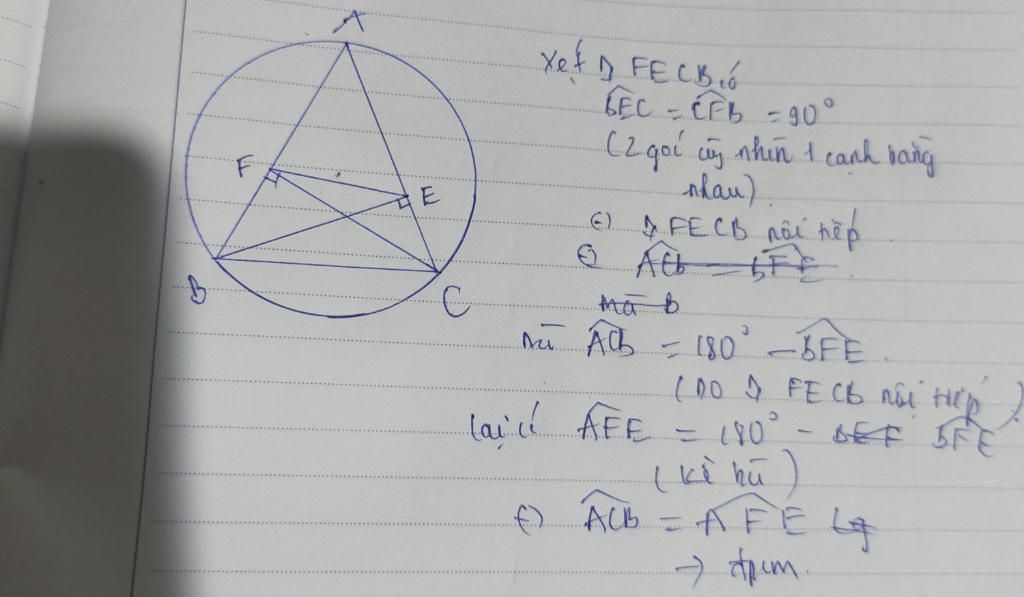 A
F
E
B
C
Xét ◊ FECB có
BEC = CFB = 90°
(2 goí cùg nhìn 1 cạnh bằng
nhau)
◊ FECB nội tiếp
ACB = BFE
mà B
mà ACB = 180° - BFE.
(DO ◊ FECB nội tiếp)
lại có AFE = 180° - BEF BFE
(kề bù)
ACB = AFE
→ đpcm.